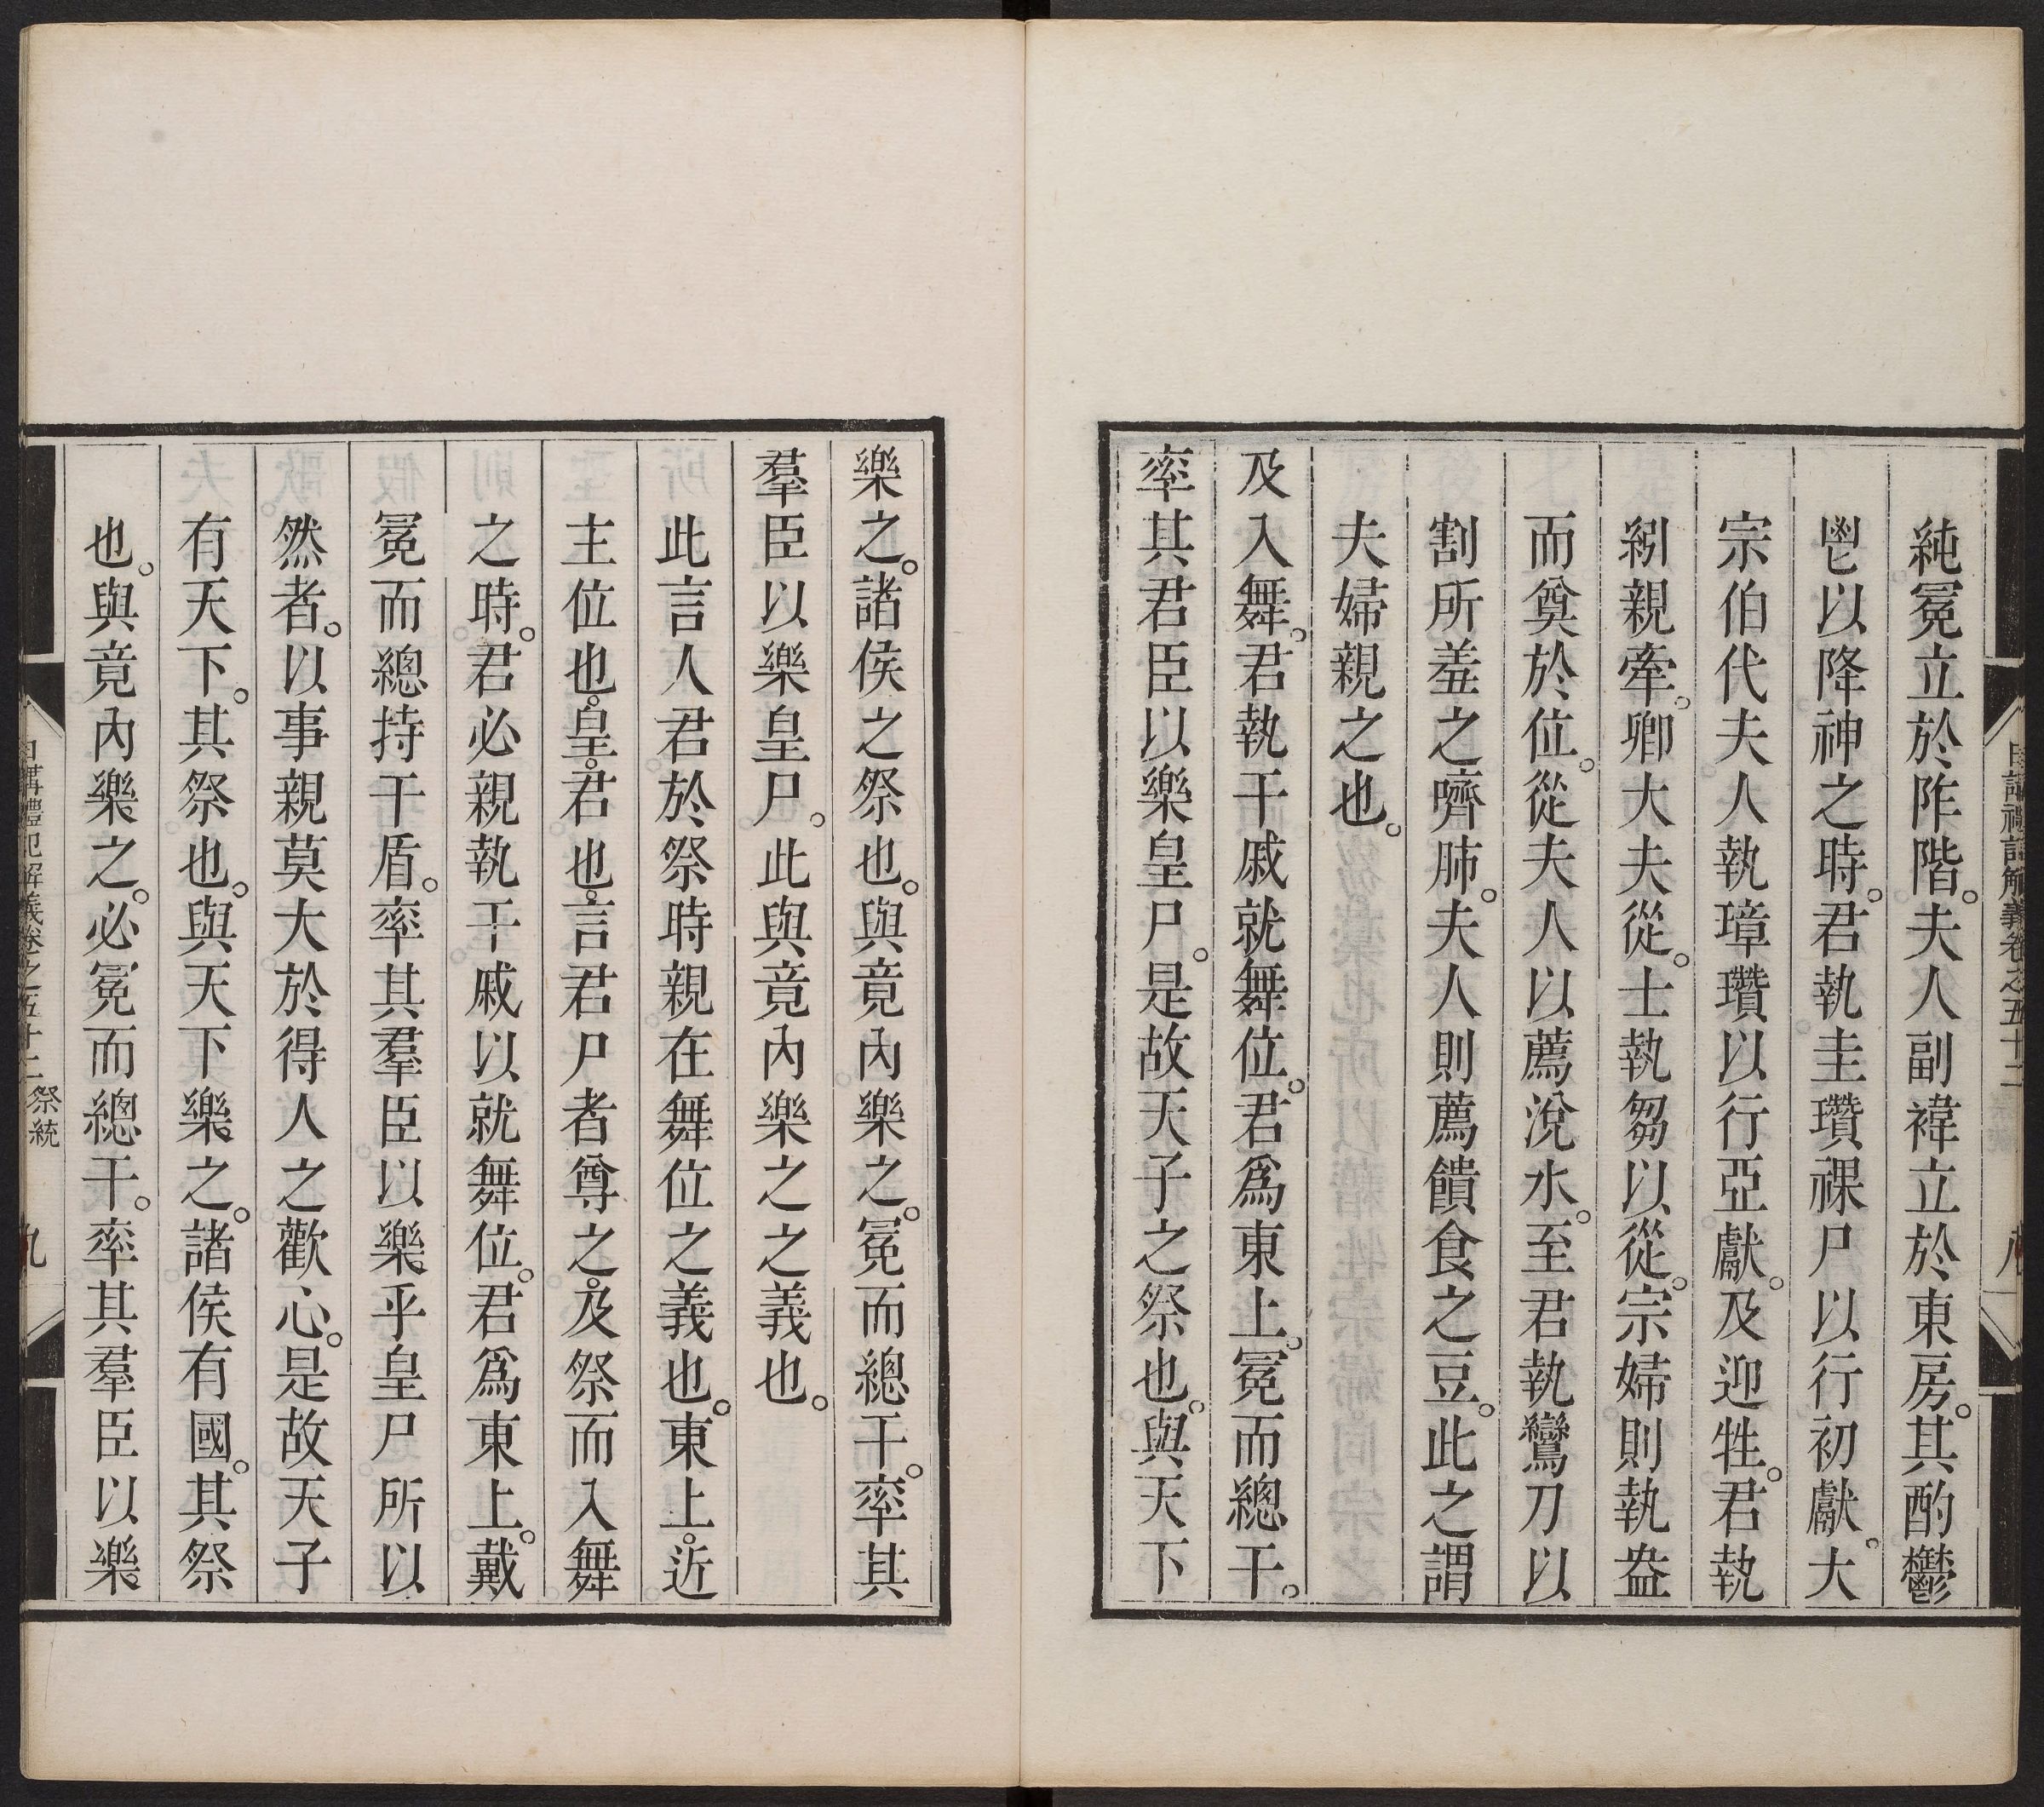 純冕立於阼階。夫人副褘立於東房。其酌鬱
鬯以降神之時。君執圭瓚祼尸以行初獻。大
宗伯代夫人執璋瓚以行亞獻。及迎牲。君執
紖親牽。卿大夫從。士執芻以從。宗婦則執盎
而奠於位。從夫人以薦涗水。至君執鸞刀以
割所羞之嚌肺。夫人則薦饋食之豆。此之謂
夫婦親之也。
及入舞。君執干戚就舞位。君爲東上。冕而總干。
率其君臣以樂皇尸。是故天子之祭也。與天下
樂之。諸侯之祭也。與竟內樂之。冕而總干。率其
羣臣以樂皇尸。此與竟內樂之之義也。
此言人君於祭時親在舞位之義也。東上。近
主位也。皇。君也。言君尸者尊之。及祭而入舞
之時。君必親執干戚以就舞位。君爲東上。戴
冕而總持干盾。率其羣臣以樂乎皇尸所以
然者。以事親莫大於得人之歡心。是故天子
有天下。其祭也。與天下樂之。諸侯有國。其祭
也。與竟內樂之。必冕而總干。率其羣臣以樂
日講禮記解義卷之五十二 祭統 九